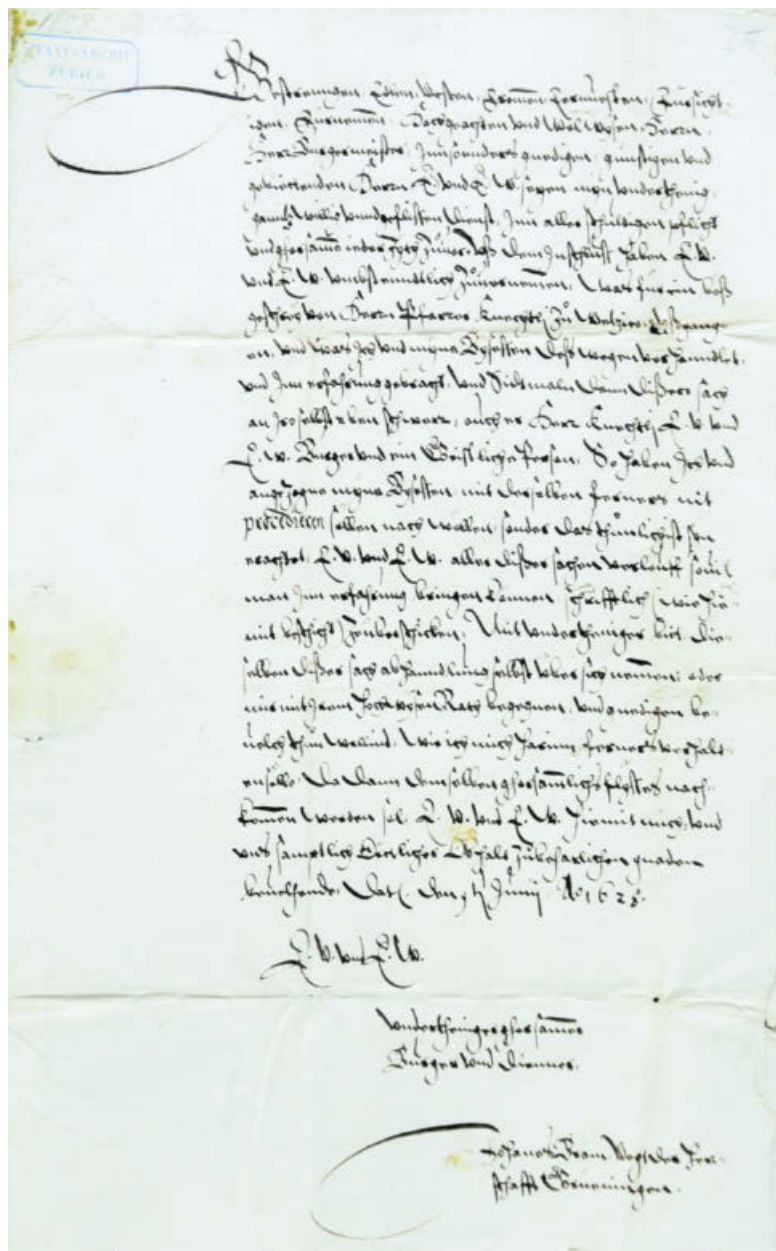 1628
STAATSARCHIV
ZÜRICH
Gestrengen, Edlen, Vesten, Frommen, Fürsicht
igen, Hochgeachten und Wol wysen, Herrn
Herr Burgermeister, Innsonders gnedigen, günstigen und
gebiettenden Herrn E. und E. W. sygen myn underthenig
ganz willig unnd geflissen dienst, Inn aller schuldigen pflicht
und gehorsamme jeder Zyth zuvor, Uß dem Inschluß haben E. V.
und E. W. umbstenndtlich zuvernemen, Was für ein böß
geschrey von Herrn Pfarrer Knechtli zu
en, und was Ich und myne Bysessen deßwegen verhanndlet,
und Inn erfahrung gebracht, Und Sidtmaln dann dißere sach
an Iro selbst eben schwer, ouch er Herr Knechtli E. V. und
E. W. Burger und ein Geistliche Person, So haben Ich und
angezogne myne Bysessen mit derselben ferners nit
procedieren sollen nach wellen, sonder das thunlichist syn
erachtet, E. V. und E. W. aller dißer sachen verlouff sovil
man Inn erfahrung bringen können schrifftlich (wie hie
mit beschicht) zuüberschicken, Mit undertheniger bitt die
selben dißer sach abhanndlung selbst uber sich nemmen, oder
mir mit Irem hochwysen Rath begegnen, und gnedigen be
velch thun wellind, Wie ich mich harinn ferners verhalt
en sölle, Da dann demselben gehorsammlichs flysses nach
kommen werden sol, E. V. und E. W. hiemit mich, und
uns samptlich Göttlicher Obhalt zu beharlichen gnaden
bevelhende, Dat. den 9t Junij A.o 1628.
E. V. und E. W.
Undertheniger gehorsammer
Burger und Diener,
Vogt der Herr
schafft Grüeningen.